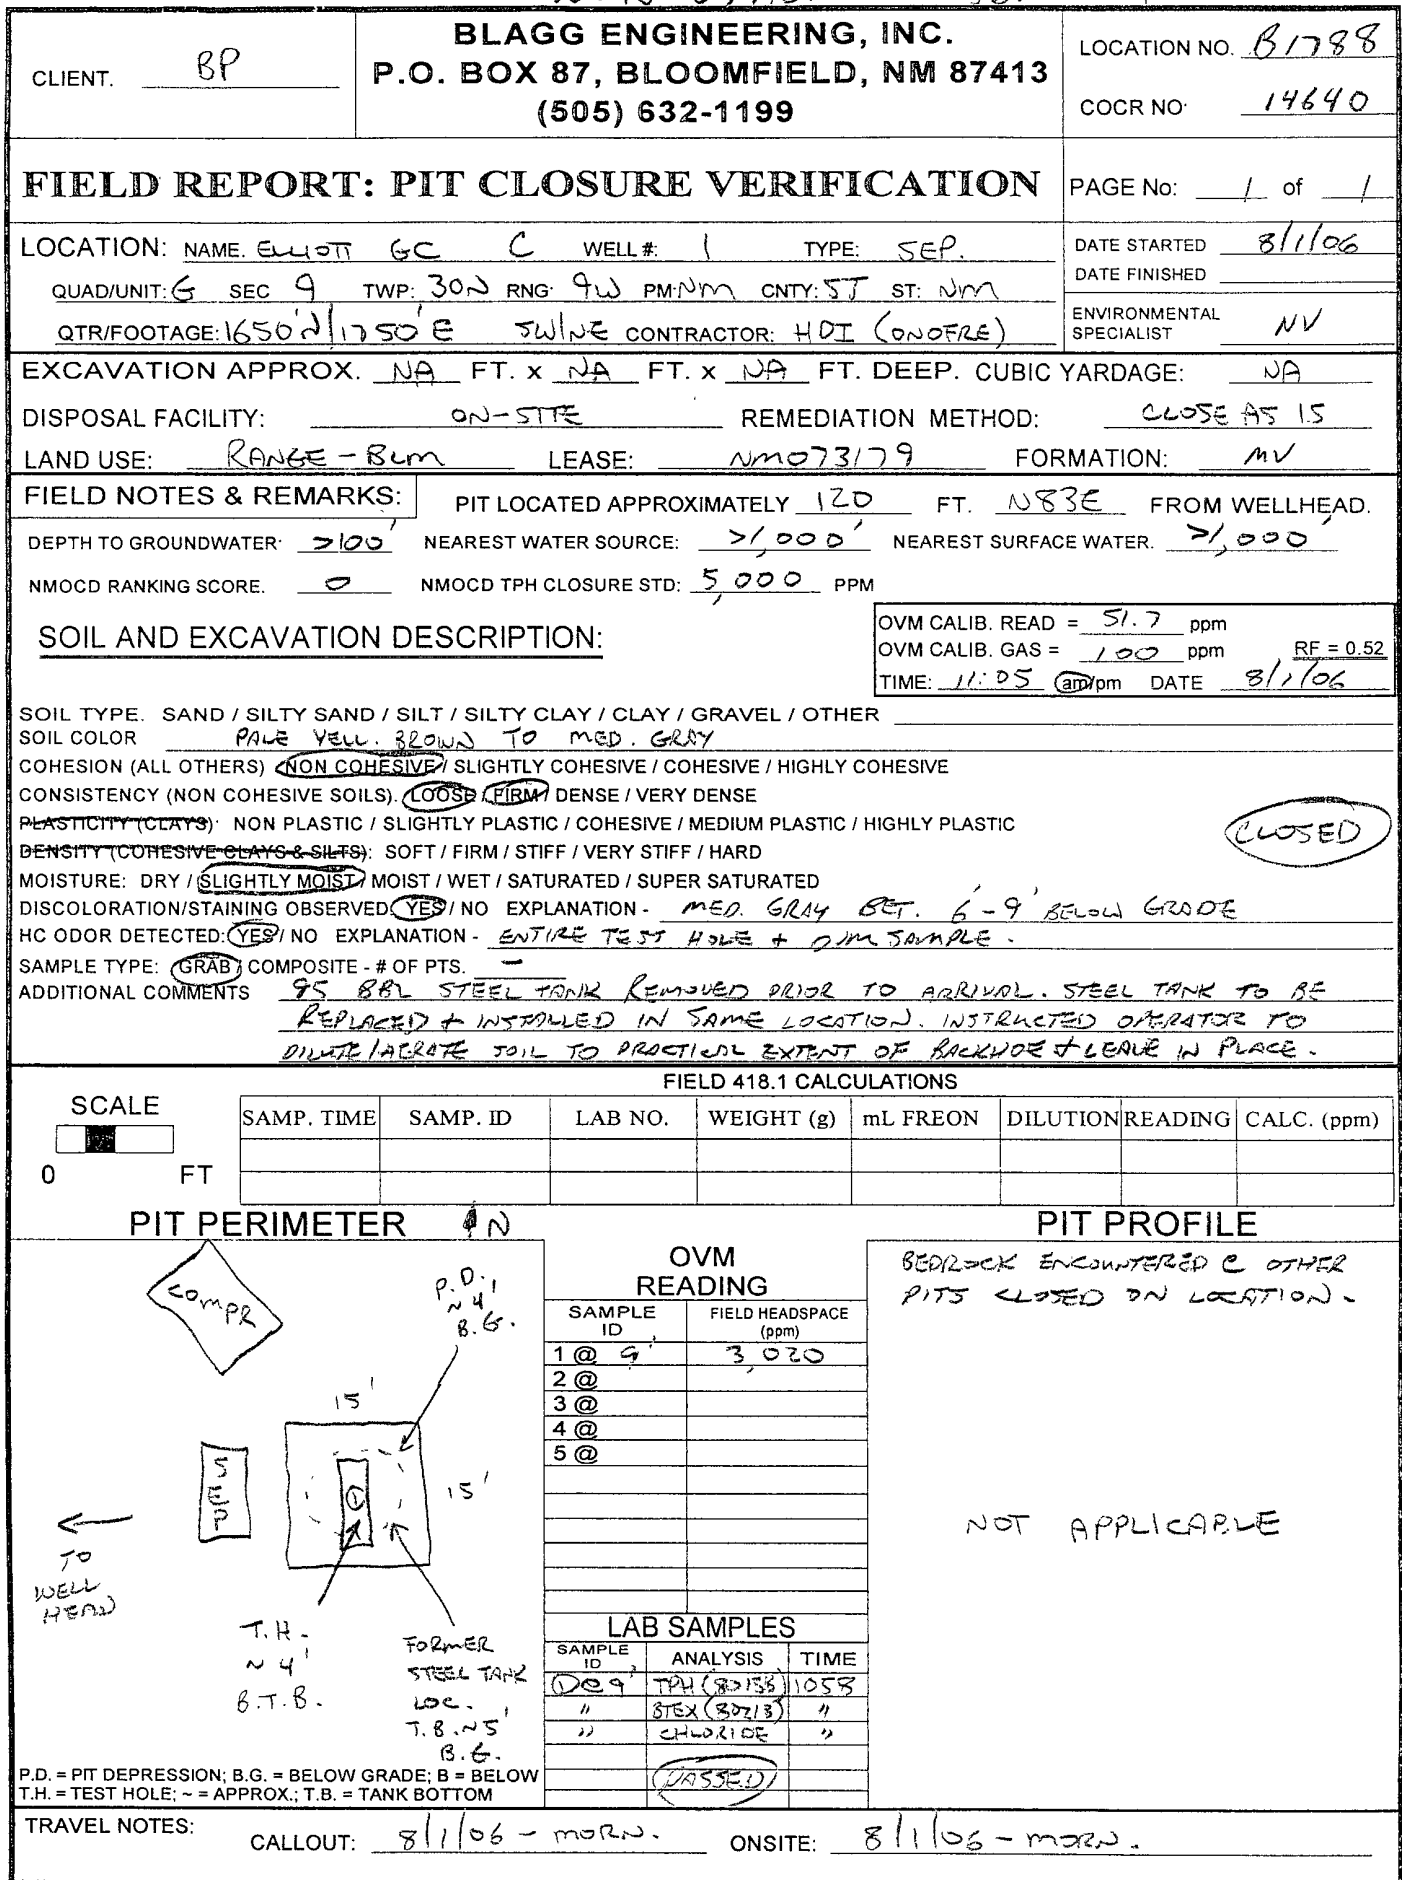 CLIENT. BP
BLAGG ENGINEERING, INC.
P.O. BOX 87, BLOOMFIELD, NM 87413
(505) 632-1199
LOCATION NO. B1788
COCR NO. 14640
FIELD REPORT: PIT CLOSURE VERIFICATION
PAGE No: 1 of 1
LOCATION: NAME. ELLIOTT GC C WELL #: 1 TYPE: SEP.
QUAD/UNIT: G SEC 9 TWP: 30N RNG: 9W PM: NM CNTY: SJ ST: NM
QTR/FOOTAGE: 1650'N/1750'E SW/NE CONTRACTOR: HDI (ONOFRE)
DATE STARTED 8/1/06
DATE FINISHED
ENVIRONMENTAL
SPECIALIST NV
EXCAVATION APPROX. NA FT. x NA FT. x NA FT. DEEP. CUBIC YARDAGE: NA
DISPOSAL FACILITY: ON-SITE REMEDIATION METHOD: CLOSE AS IS
LAND USE: RANGE - BLM LEASE: NM073179 FORMATION: MV
FIELD NOTES & REMARKS: PIT LOCATED APPROXIMATELY 120 FT. N83E FROM WELLHEAD.
DEPTH TO GROUNDWATER: >100' NEAREST WATER SOURCE: >1,000' NEAREST SURFACE WATER. >1,000'
NMOCD RANKING SCORE. 0 NMOCD TPH CLOSURE STD: 5,000 PPM
SOIL AND EXCAVATION DESCRIPTION:
OVM CALIB. READ = 51.7 ppm
OVM CALIB. GAS = 100 ppm RF = 0.52
TIME: 11:05 am/pm DATE 8/1/06
SOIL TYPE. SAND / SILTY SAND / SILT / SILTY CLAY / CLAY / GRAVEL / OTHER
SOIL COLOR PALE YELL. BROWN TO MED. GRAY
COHESION (ALL OTHERS) NON COHESIVE / SLIGHTLY COHESIVE / COHESIVE / HIGHLY COHESIVE
CONSISTENCY (NON COHESIVE SOILS). LOOSE / FIRM / DENSE / VERY DENSE
PLASTICITY (CLAYS): NON PLASTIC / SLIGHTLY PLASTIC / COHESIVE / MEDIUM PLASTIC / HIGHLY PLASTIC
DENSITY (COHESIVE CLAYS & SILTS): SOFT / FIRM / STIFF / VERY STIFF / HARD
CLOSED
MOISTURE: DRY / SLIGHTLY MOIST / MOIST / WET / SATURATED / SUPER SATURATED
DISCOLORATION/STAINING OBSERVED: YES / NO EXPLANATION - MED. GRAY BET. 6'-9' BELOW GRADE
HC ODOR DETECTED: YES / NO EXPLANATION - ENTIRE TEST HOLE + OVM SAMPLE.
SAMPLE TYPE: GRAB / COMPOSITE - # OF PTS. -
ADDITIONAL COMMENTS 95 BBL STEEL TANK REMOVED PRIOR TO ARRIVAL. STEEL TANK TO BE
REPLACED + INSTALLED IN SAME LOCATION. INSTRUCTED OPERATOR TO
DILUTE/AERATE SOIL TO PRACTICAL EXTENT OF BACKHOE + LEAVE IN PLACE.
FIELD 418.1 CALCULATIONS
SCALE
0 FT
SAMP. TIME SAMP. ID LAB NO. WEIGHT (g) mL FREON DILUTION READING CALC. (ppm)
PIT PERIMETER N
COMPR
P.D.
~ 4'
B.G.
15'
SEP
①
15'
TO
WELL
HEAD
T.H.
~ 4'
B.T.B.
FORMER
STEEL TANK
LOC.
T.B. ~ 5'
B.G.
P.D. = PIT DEPRESSION; B.G. = BELOW GRADE; B = BELOW
T.H. = TEST HOLE; ~ = APPROX.; T.B. = TANK BOTTOM
OVM
READING
SAMPLE ID FIELD HEADSPACE (ppm)
1 @ 9' 3,020
2 @
3 @
4 @
5 @
LAB SAMPLES
SAMPLE ID ANALYSIS TIME
①@9' TPH (8015B) 1058
" BTEX (8021B) "
" CHLORIDE "
PASSED
PIT PROFILE
BEDROCK ENCOUNTERED @ OTHER
PITS CLOSED ON LOCATION.
NOT APPLICABLE
TRAVEL NOTES: CALLOUT: 8/1/06 - MORN. ONSITE: 8/1/06 - MORN.